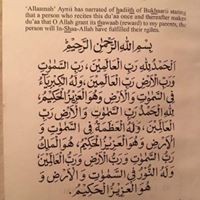 'Allaamah' Aynii has narrated of hadiith of Bukhaarii stating
that a person who recites this du'aa once and thereafter makes
du'aa that O Allah grant its thawaab (reward) to my parents, the
person will In-Shaa-Allah have fulfilled their rights.
بِسْمِ اللهِ الرَّحْمٰنِ الرَّحِيْمِ
اَلْحَمْدُ لِلّٰهِ رَبِّ الْعَالَمِيْنَ، رَبِّ السَّمٰوٰتِ
وَرَبِّ الْاَرْضِ رَبِّ الْعَالَمِيْنَ، وَلَهُ الْكِبْرِيَاءُ
فِي السَّمٰوٰتِ وَ الْاَرْضِ وَهُوَ الْعَزِيْزُ الْحَكِيْمُ،
لِلّٰهِ الْحَمْدُ رَبِّ السَّمٰوٰتِ وَ رَبِّ الْاَرْضِ رَبِّ
الْعَالَمِيْنَ، وَلَهُ الْعَظَمَةُ فِي السَّمٰوٰتِ وَ
الْاَرْضِ وَهُوَ الْعَزِيْزُ الْحَكِيْمُ، هُوَ الْمَلِكُ
رَبُّ السَّمٰوٰتِ وَ رَبُّ الْاَرْضِ وَ رَبُّ الْعَالَمِيْنَ،
وَلَهُ النُّوْرُ فِي السَّمٰوٰتِ وَ الْاَرْضِ وَ
هُوَ الْعَزِيْزُ الْحَكِيْمُ،